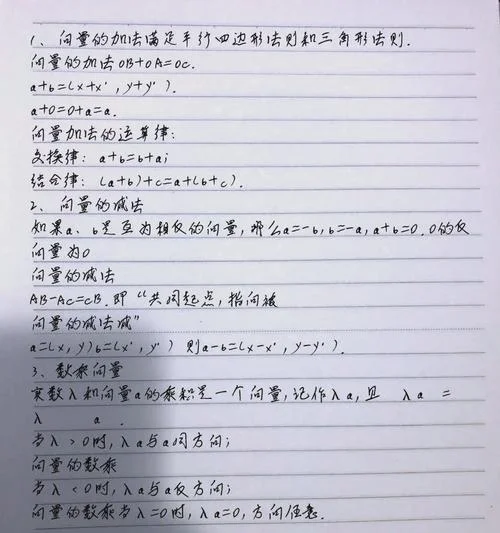 1、向量的加法满足平行四边形法则和三角形法则.
向量的加法OB+OA=OC.
a+b=(x+x', y+y').
a+0=0+a=a.
向量加法的运算律:
交换律: a+b=b+a;
结合律: (a+b)+c=a+(b+c).
2、向量的减法
如果a、b是互为相反的向量,那么a=-b,b=-a,a+b=0. 0的反
向量为0
向量的减法
AB-AC=CB. 即“共同起点,指向被
向量的减法减”
a=(x, y)b=(x', y') 则a-b=(x-x', y-y').
3、数乘向量
实数λ和向量a的乘积是一个向量,记作λa,且 λa =
λ a .
当λ>0时,λa与a同方向;
向量的数乘
当λ<0时,λa与a反方向;
向量的数乘当λ=0时,λa=0,方向任意.